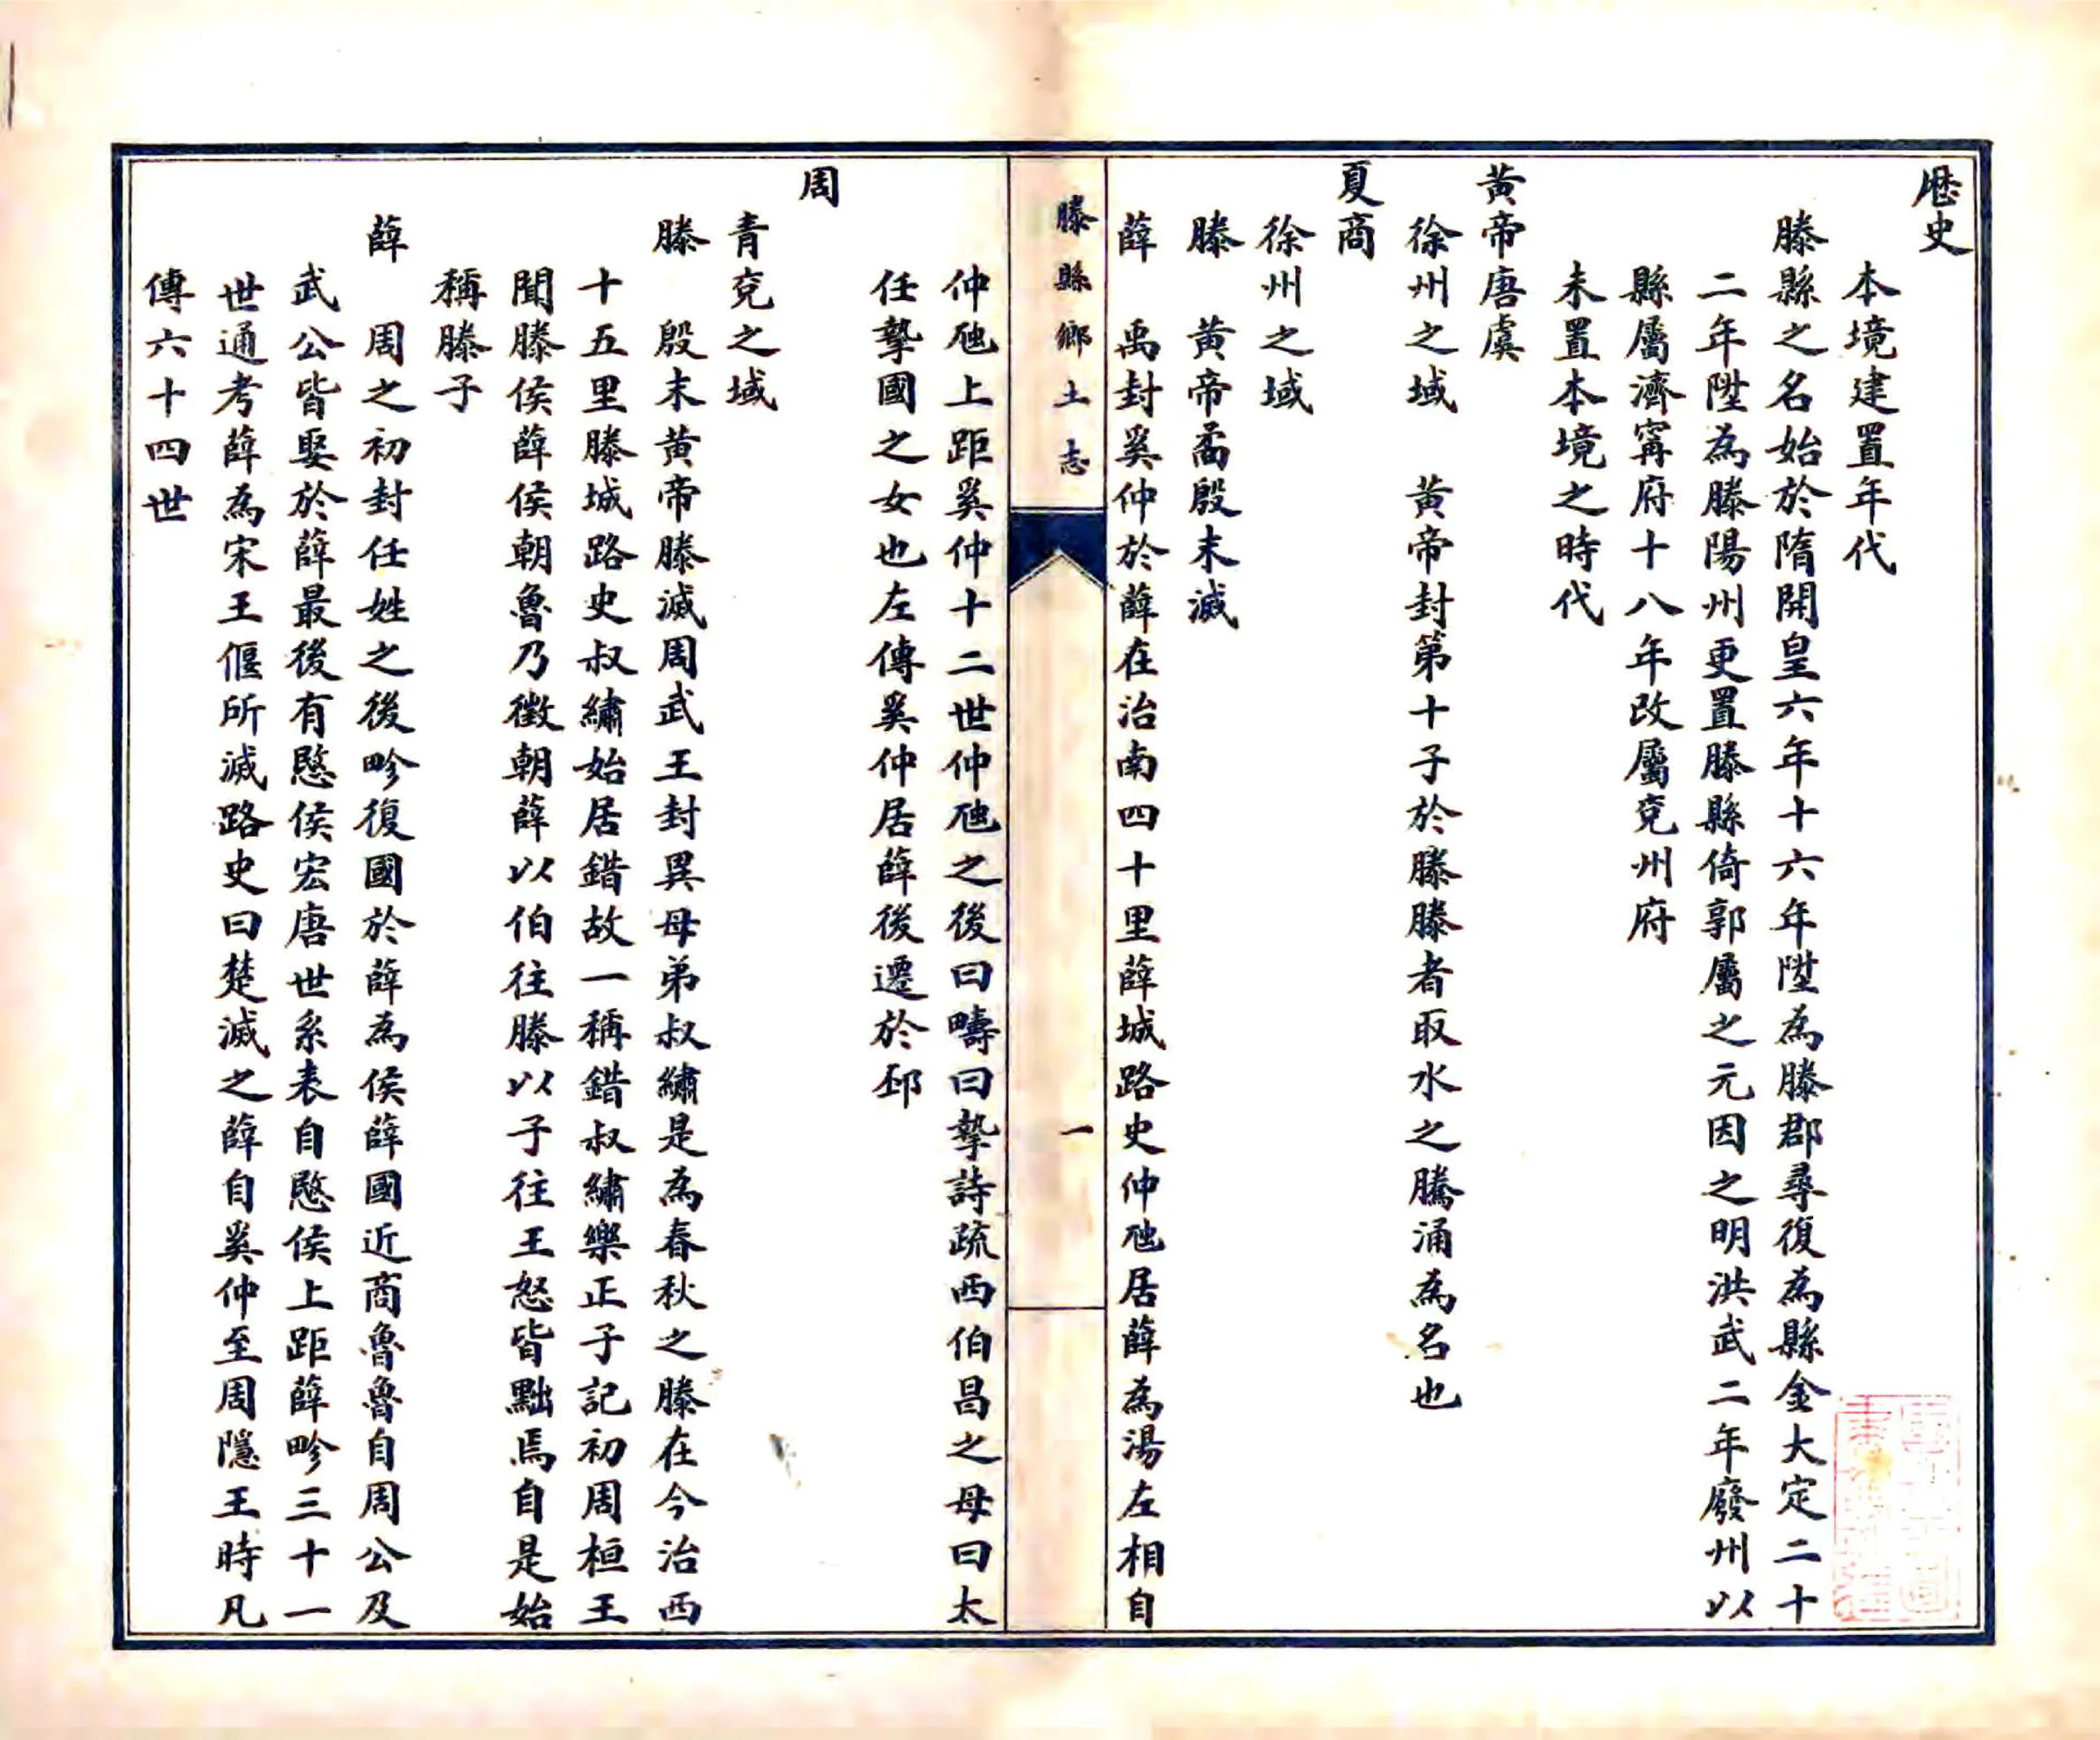 歷史
本境建置年代
滕縣之名始於隋開皇六年十六年陞為滕郡尋復為縣金大定二十
二年陞為滕陽州更置滕縣倚郭屬之元因之明洪武二年廢州以
縣屬濟寧府十八年改屬兗州府
未置本境之時代
黃帝唐虞
徐州之域　黃帝封第十子於滕滕者取水之騰涌為名也
夏商
徐州之域
滕　黃帝裔殷末滅
薛　禹封奚仲於薛在治南四十里薛城路史仲虺居薛為湯左相自
滕縣鄉土志
一
仲虺上距奚仲十二世仲虺之後曰疇曰摯詩疏西伯昌之母曰太
任摯國之女也左傳奚仲居薛後遷於邳
周
青兗之域
滕　殷末黃帝滕滅周武王封異母弟叔繡是為春秋之滕在今治西
十五里滕城路史叔繡始居錯故一稱錯叔繡樂正子記初周桓王
聞滕侯薛侯朝魯乃徵朝薛以伯往滕以子往王怒皆黜焉自是始
稱滕子
薛　周之初封任姓之後畛復國於薛為侯薛國近商魯魯自周公及
武公皆娶於薛最後有愍侯宏唐世系表自愍侯上距薛畛三十一
世通考薛為宋王偃所滅路史曰楚滅之薛自奚仲至周隱王時凡
傳六十四世